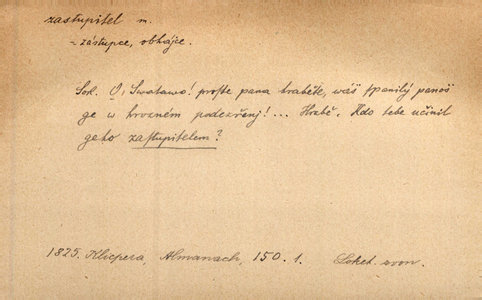 zastupitel m.
= zástupce, obhájce.
Sol. O, Swatawo! proste pana hraběte, wáš spanilý panoš
ge w hrozném podezřenj! ... Hrabě. Kdo tebe učinil
geho zastupitelem?
1825. Klicpera, Almanach, 150. 1. Loket. zvon.